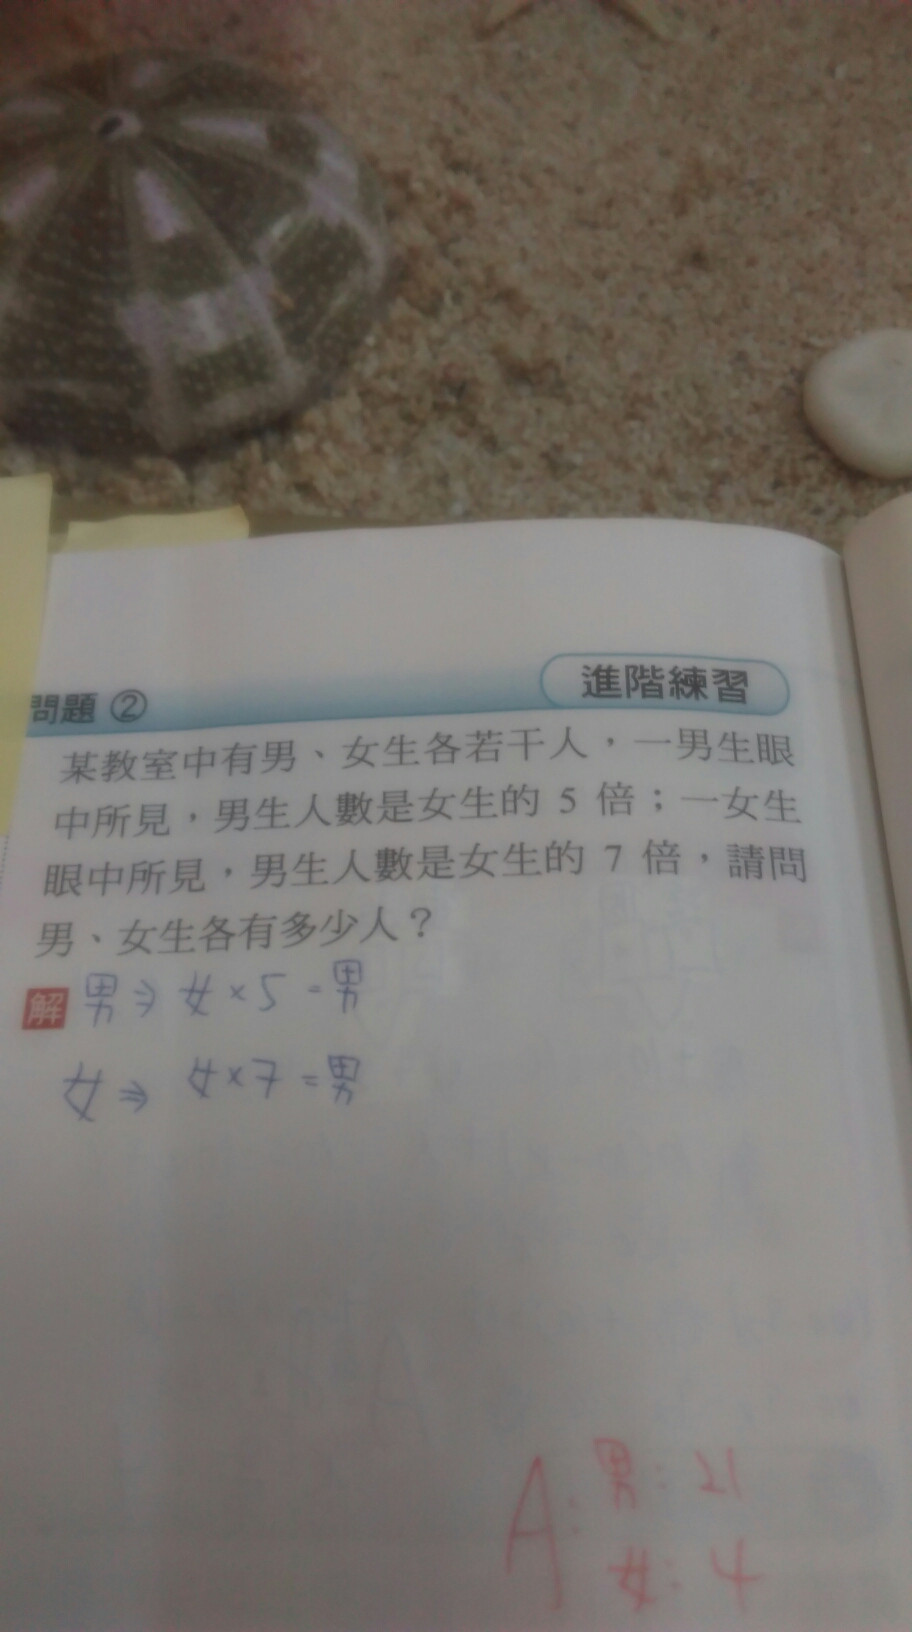 問題 ② 進階練習
某教室中有男、女生各若干人，一男生眼
中所見，男生人數是女生的 5 倍；一女生
眼中所見，男生人數是女生的 7 倍，請問
男、女生各有多少人？
解 男⇒ 女×5 = 男
女⇒ 女×7 = 男
A: 男: 21
女: 4